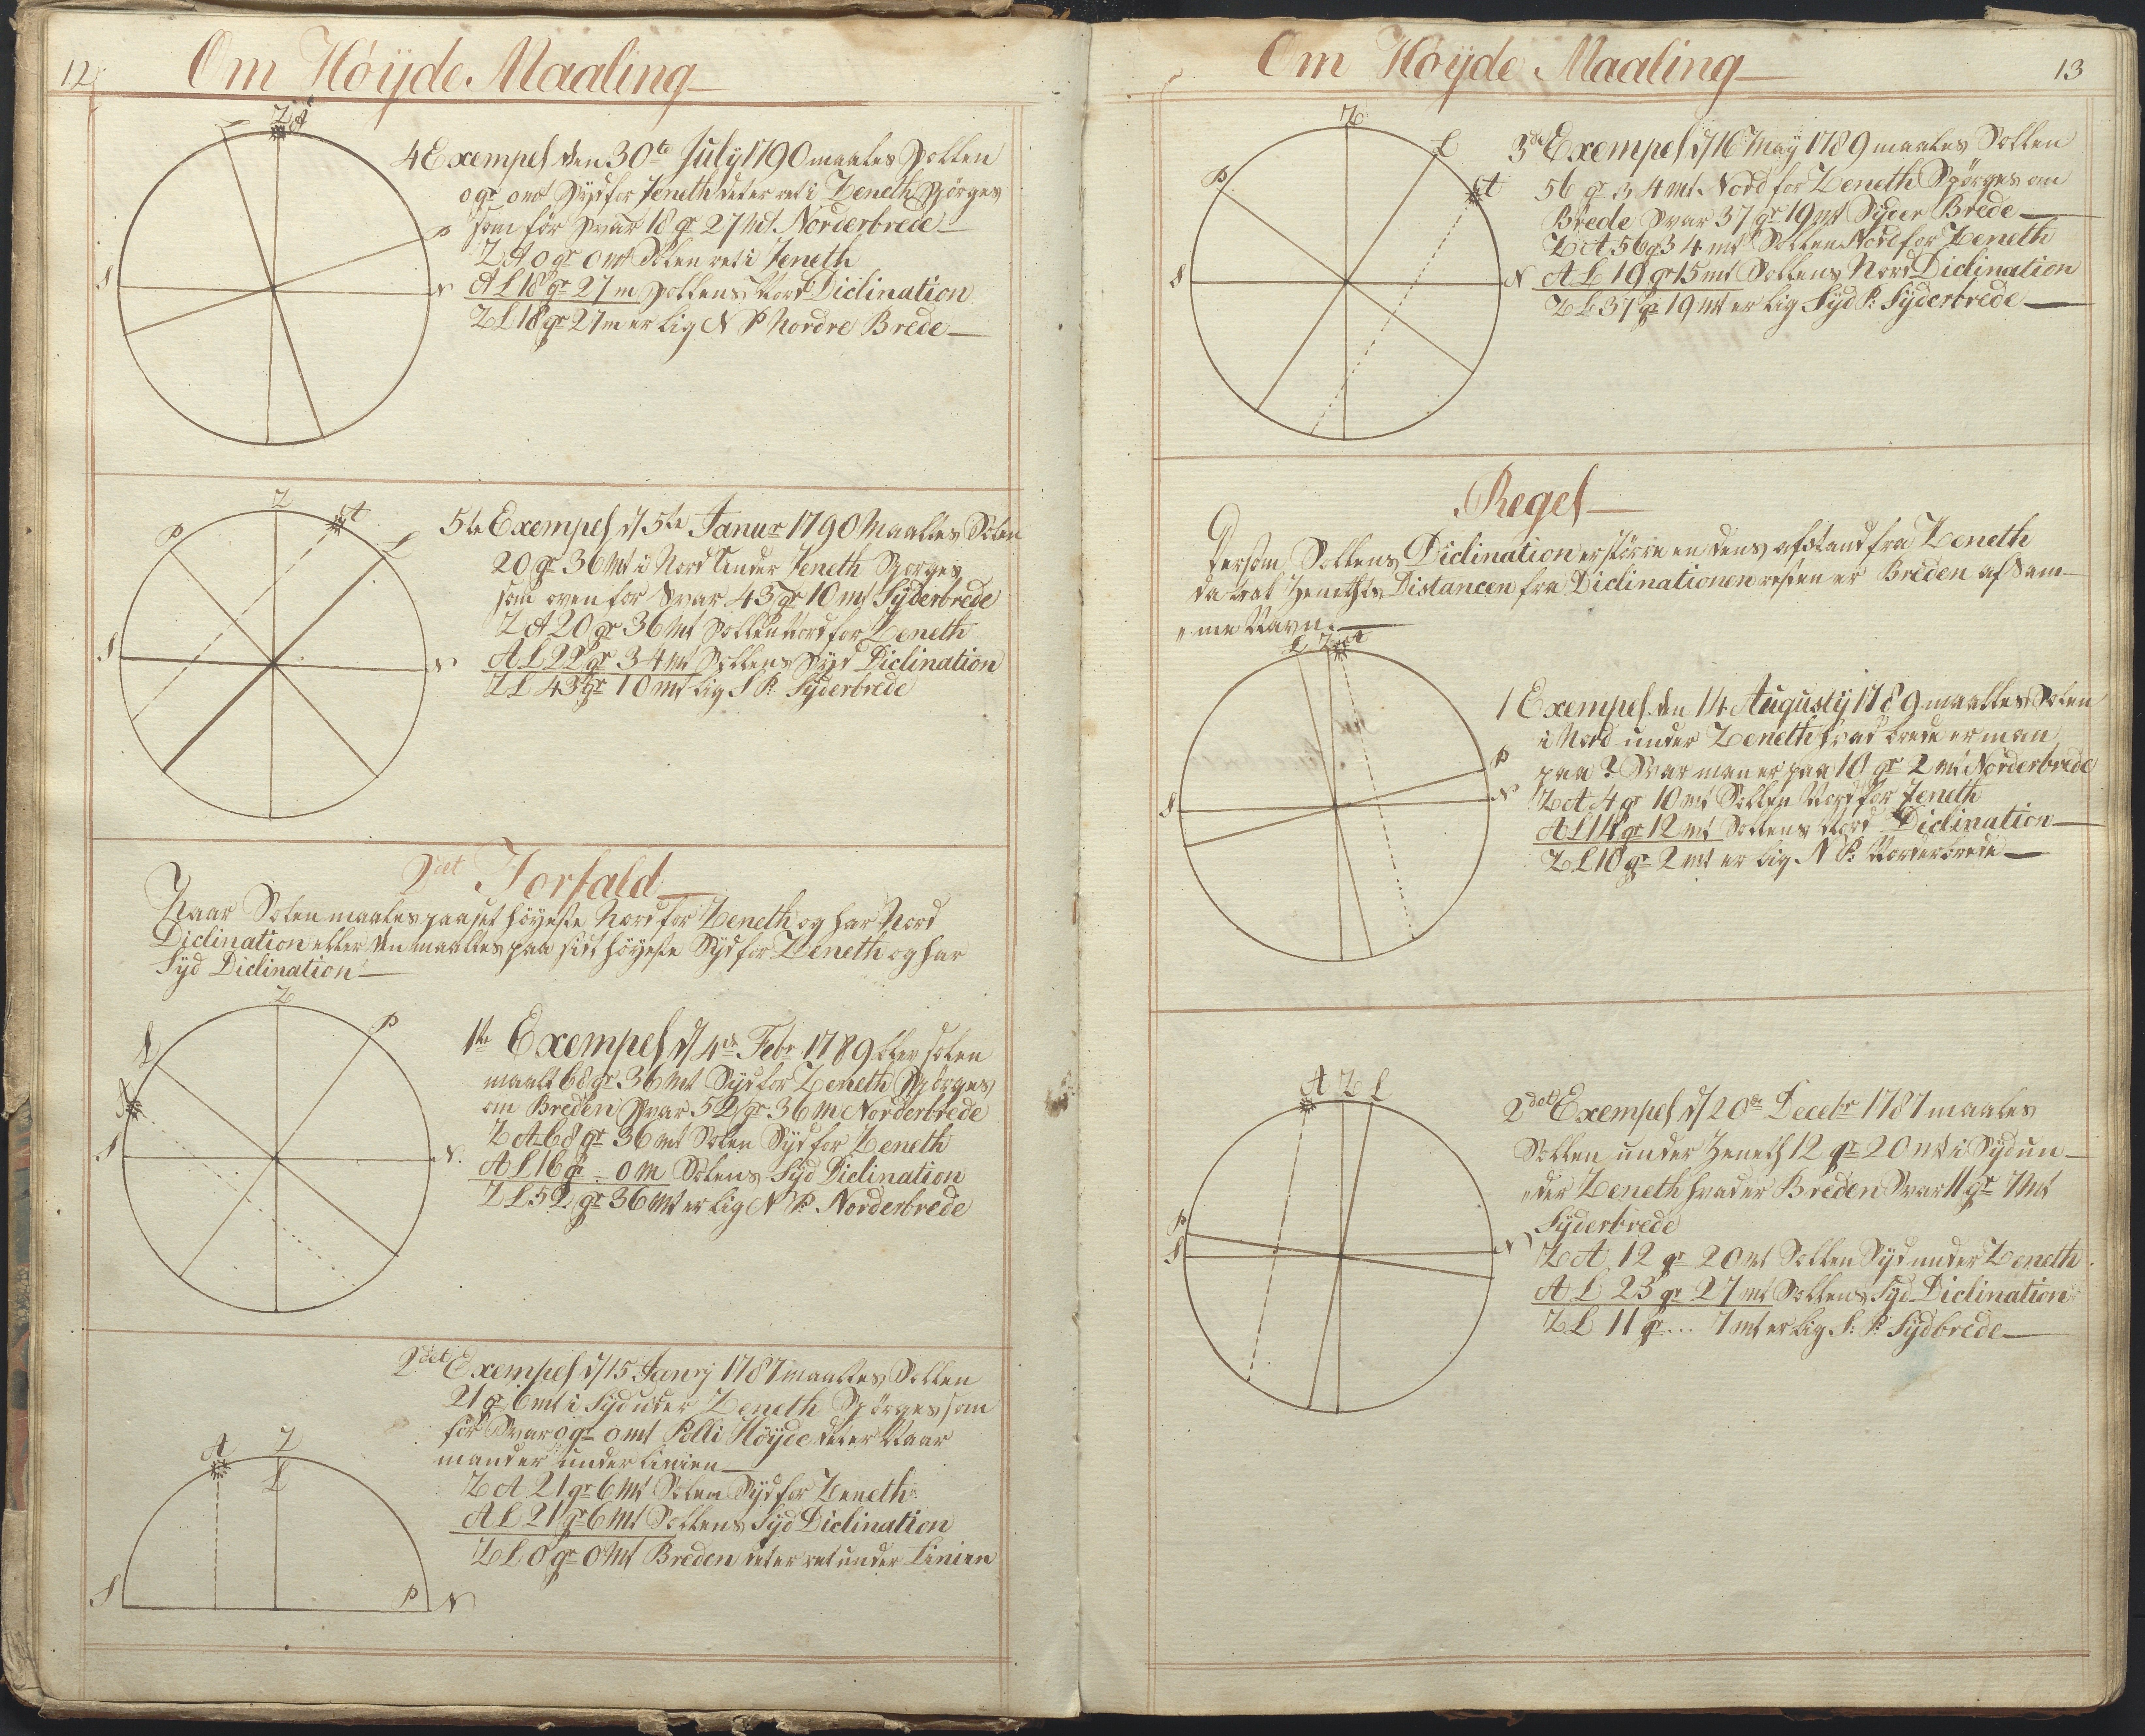 12
Om Høyde Maaling
Z A
Æ
P
S
N
4 Exempel den 30te July 1790 maales Sollen
0 gr 0 mt Syd for Zeneth det er ret i Zeneth Spørges
som før Svar 18 gr 27 mt Norderbrede
Z A 0 gr 0 mt Solen ret i Zeneth
A Æ 18 gr 27 m Sollens Nord Diclination
Z Æ 18 gr 27 m er lig N P Nordre Brede
Z
A
P
Æ
S
N
5te Exempel d 5te Janur 1790 Maaltes Solen
20 gr 36 mt i Nord Under Zeneth Spørges
som oven for Svar 43 gr 10 mt Syderbrede
Z A 20 gr 36 mt Sollen Nord for Zeneth
A Æ 22 gr 34 mt Sollens Syd Diclination
Z Æ 43 gr 10 mt lig S P: Syderbrede
2det Forfald
Naar Solen maales paa sit høyeste Nord for Zeneth og har Nord
Diclination eller den maaltes paa sidt høyeste Syd for Zeneth og har
Syd Diclination
Z
P
Æ
A
S
N
1te Exempel d 4de Febr 1789 blev solen
maalt 68 gr 36 mt Syd for Zeneth Spørges
om Breden Svar 52 gr 36 m Norderbrede
Z A 68 gr 36 mt Solen Syd for Zeneth
A Æ 16 gr .. 0 m Solens Syd Diclination
Z Æ 52 gr 36 mt er lig N P: Norderbrede
2det Exempel d 15 1787 maaltes Sollen
21 gr 6 mt i Syd under Zeneth Spørges som
før Svar 0 gr 0 mt Polli Høyde det er Naar
man er under Linien
Z A 21 gr 6 mt Solen Syd for Zeneth
A Æ 21 gr 6 mt Sollens Syd Diclination
Z Æ 0 gr 0 mt Breden det er ret under Linien
A
Z
Æ
S
P
N
Om Høyde Maaling
13
Z
Æ
A
P
S
N
3de Exempel d 16 May 1789 maales Sollen
56 gr 34 mt Nord for Zeneth Spørges om
Brede Svar 37 gr 19 mt Syder Brede
Z A 56 g 34 mt Sollen Nord for Zeneth
A Æ 19 gr 15 mt Sollens Nord Diclination
Z Æ 37 gr 19 mt er lig Syd P: Syderbrede
Regel
Dersom Sollens Diclination er større en dens afstand fra Zeneth
da træk Zeneths Distancen fra Diclinationen resten er Breden af Sam-
„me Navn.
Æ Z A
P
S
N
1 Exempel den 14 Augusty 1789 maaltes Solen
i Nord under Zeneth hvad brede er man
paa? Svar man er paa 10 gr 2 mt Norderbrede
Z A 4 gr 10 mt Sollen Nord for Zeneth
A Æ 14 gr 12 mt Sollens Nord Diclination
Z Æ 10 gr 2 mt er lig N P: Norderbrede
A Z Æ
P
S
N
2det Exempel d 20de Decebr 1787 maales
Sollen under Zeneth 12 gr 20 mt i Syd un-
„der Zeneth hvad er Breden Svar 11 gr 7 mt
Syderbrede
Z A 12 gr 20 mt Sollen Syd under Zeneth
A Æ 23 gr 27 mt Sollens Syd Diclination
Z Æ 11 gr ... 7 mt er lig S: P: Sydbrede